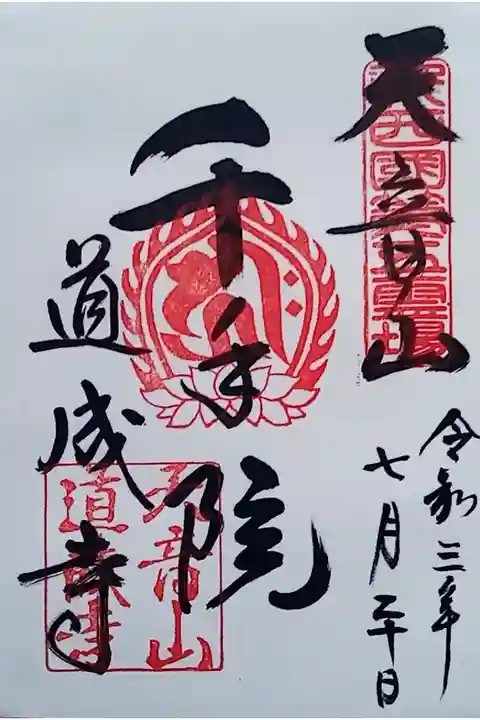 天音山
千手院
道成寺
令和三年
七月二十日
天音山
道成寺